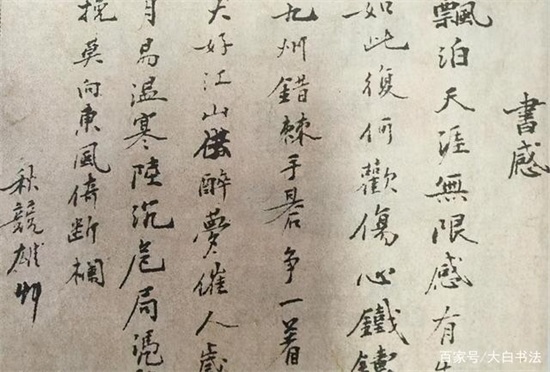 書感
飄泊天涯無限感有
如此復何歡傷心鐵鑄
九州錯棘手碁爭一着
大好江山供醉夢催人歲
月易溫寒陸沉危局憑
挽莫向東風倚斷欄
秋競雄艸
百家号/大白书法